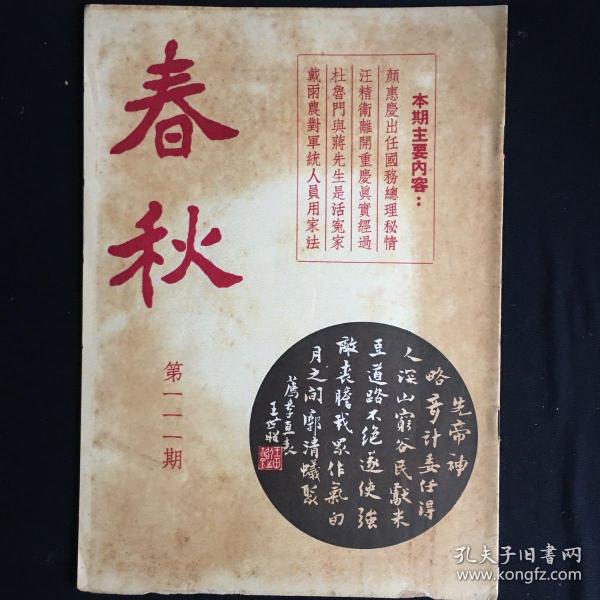 春秋
第一一一期
本期主要內容：
顏惠慶出任國務總理秘情
汪精衛離開重慶眞實經過
杜魯門與蔣先生是活寃家
戴雨農對軍統人員用家法
先帝神
略奇計委任得
人深山窮谷民獻米
豆道路不絕遂使強
敵喪膽我眾作氣旬
月之间廓清蟻聚
薦季直表
王世昭
孔夫子旧书网
www.kongfz.com